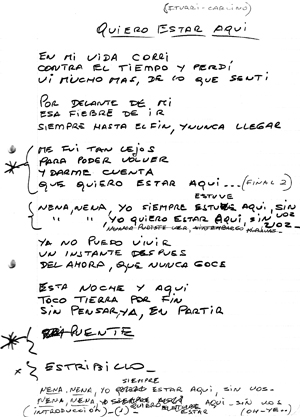 (ITURRI-CARLINO)
QUIERO ESTAR AQUI
EN MI VIDA CORRI
CONTRA EL TIEMPO Y PERDÍ
VI MUCHO MAS, DE LO QUE SENTI
POR DELANTE DE MI
ESA FIEBRE DE IR
SIEMPRE HASTA EL FIN, Y NUNCA LLEGAR
ME FUI TAN LEJOS
PARA PODER VOLVER
Y DARME CUENTA
QUE QUIERO ESTAR AQUI... (FINAL 2)
ESTUVE
NENA, NENA, YO SIEMPRE ESTUVE AQUI, SIN
" " , YO QUIERO ESTAR AQUI, SIN VOS
VOZ-
NUNCA PUDISTE VER,
YA NO PUEDO VIVIR
UN INSTANTE DESPUES
DEL AHORA, QUE NUNCA GOCE
ESTA NOCHE Y AQUI
TOCO TIERRA POR FIN
SIN PENSAR, YA, EN PARTIR
PUENTE
ESTRIBILLO_
SIEMPRE
NENA, NENA, YO QUIERO ESTAR AQUI, SIN VOS-
NENA, NENA, YO AQUI-SIN VOS
QUIERO ESTAR
(INTRODUCCIÓN) (OH-YE..)